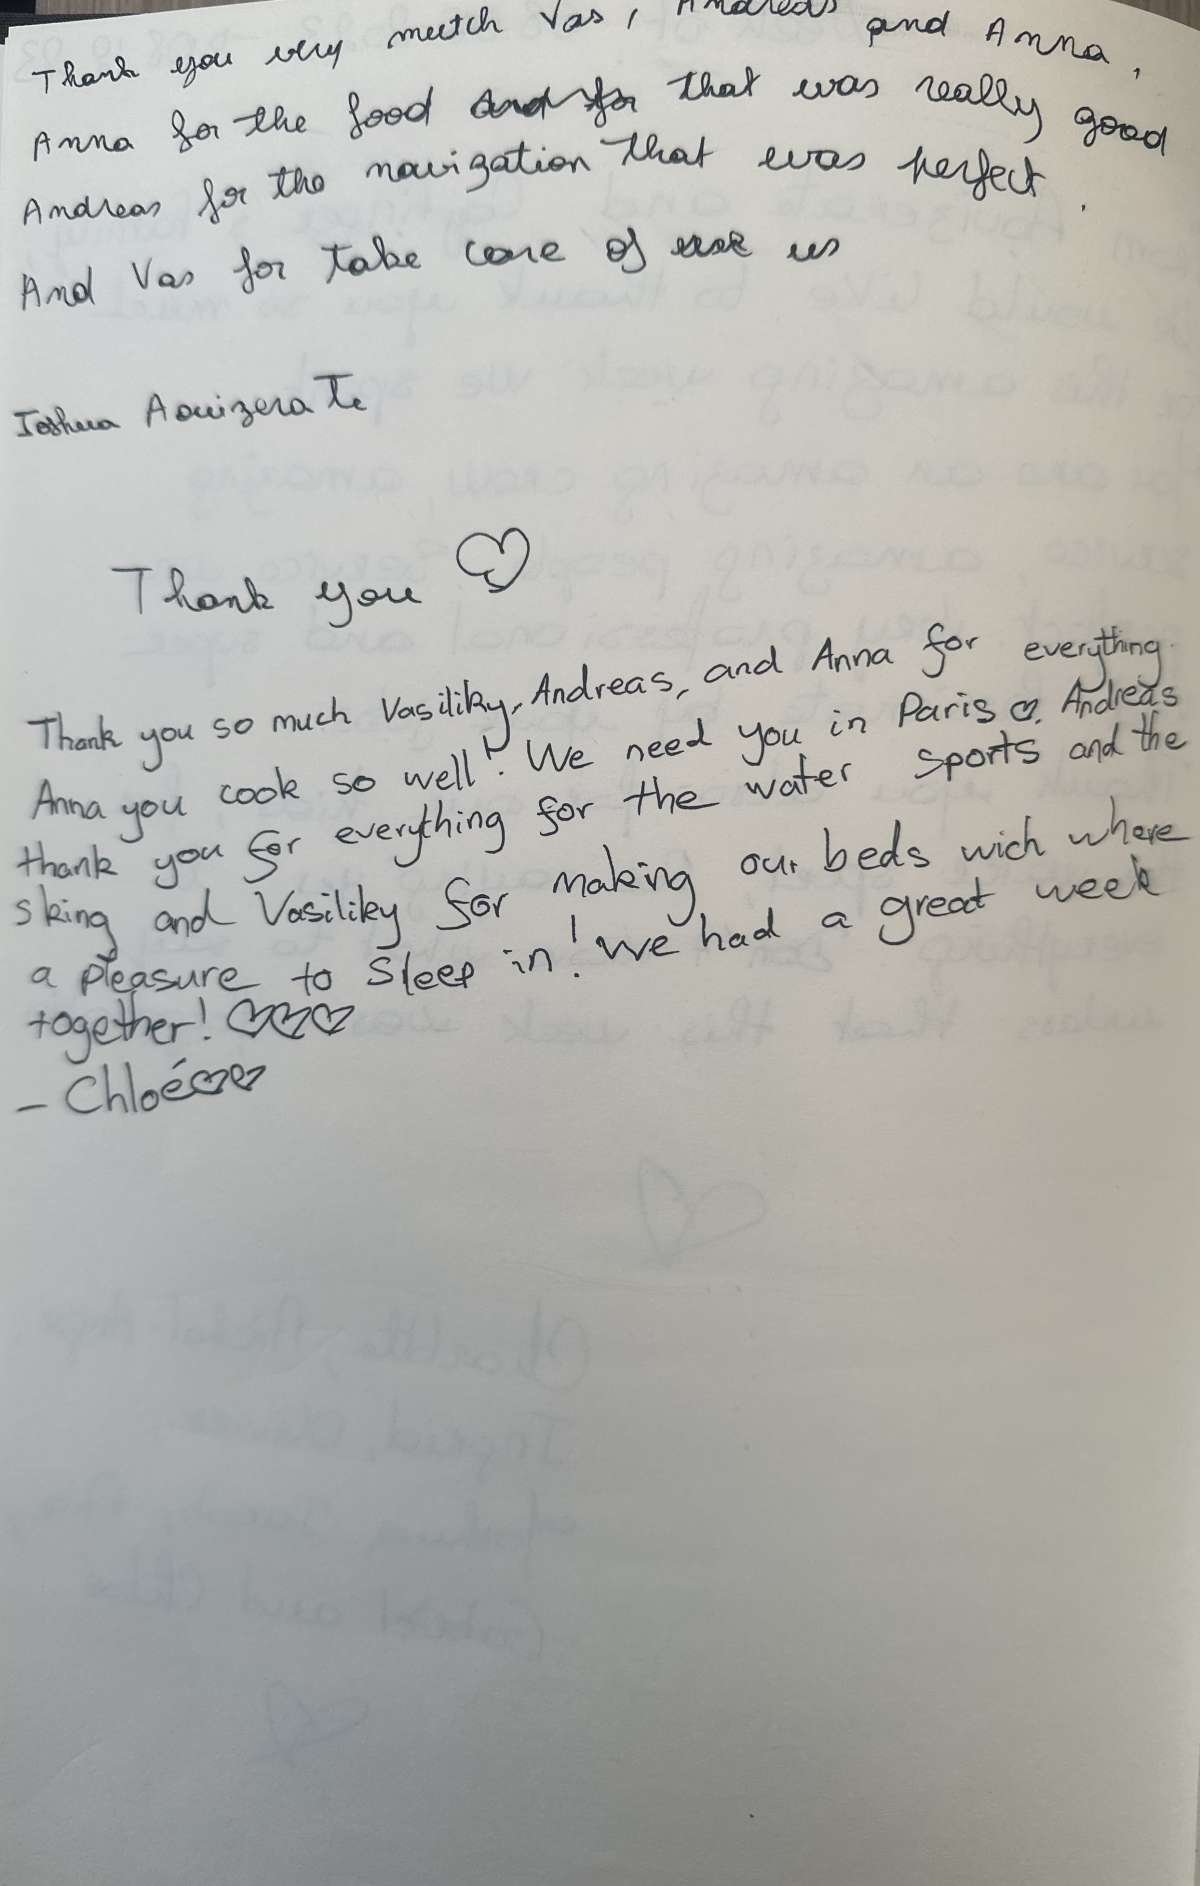 Thank you very mutch Vas, Andreas and Anna,
Anna for the food and for that was really good
Andreas for the navigzation that was perfect.
And Vas for take care of us
Ioshua Aouizerate
Thank you
Thank you so much Vasiliky, Andreas, and Anna for everything.
Anna you cook so well! We need you in Paris. Andreas
thank you for everything for the water sports and the
sking and Vasiliky for making our beds wich where
a pleasure to sleep in! We had a great week
together!
- Chloé